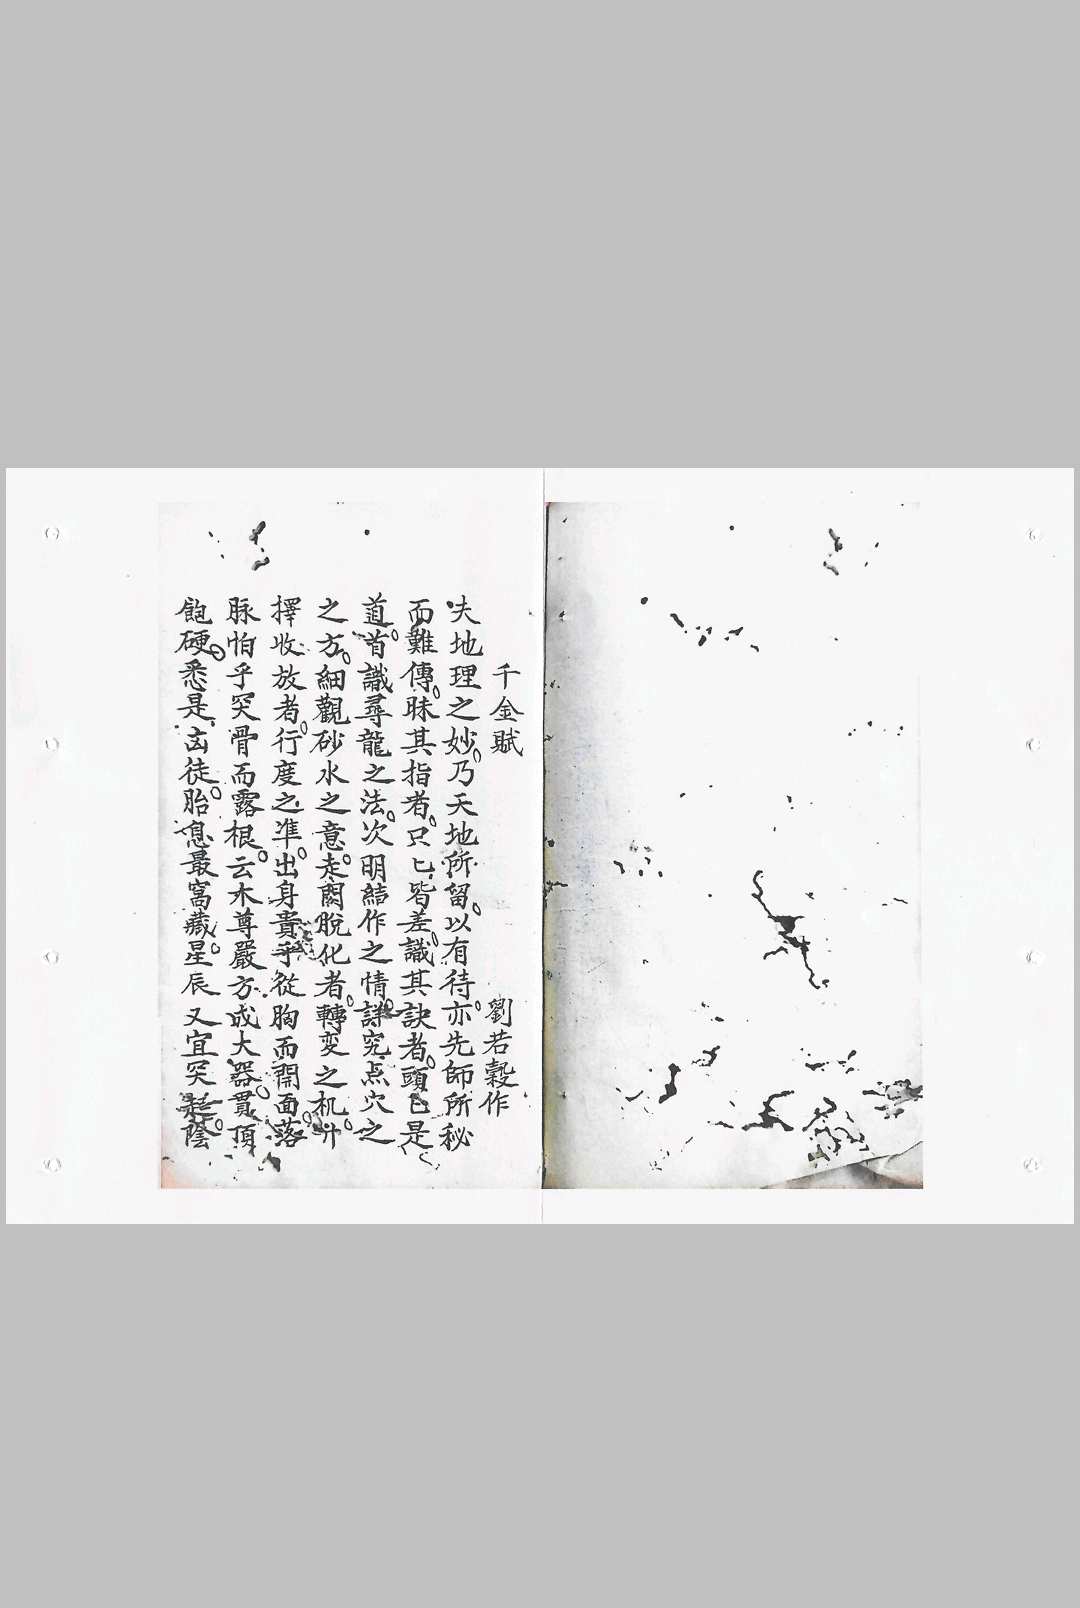 千金賦
劉若穀作
夫地理之妙。乃天地所留。以有待。亦先師所秘
而難傳。昧其指者。只匕皆差。識其訣者。頭匕是
道。首識尋龍之法。次明結作之情。詳究点穴之
之方。細觀砂水之意。走閃脫化者。轉変之机。升
擇收放者。行度之準。出身貴乎從胸而開面。落
脉怕乎突骨而露根。云木尊嚴。方成大器。貫頂
飽硬。悉是玄徒。胎息最窩藏。星辰又宜突 陰。